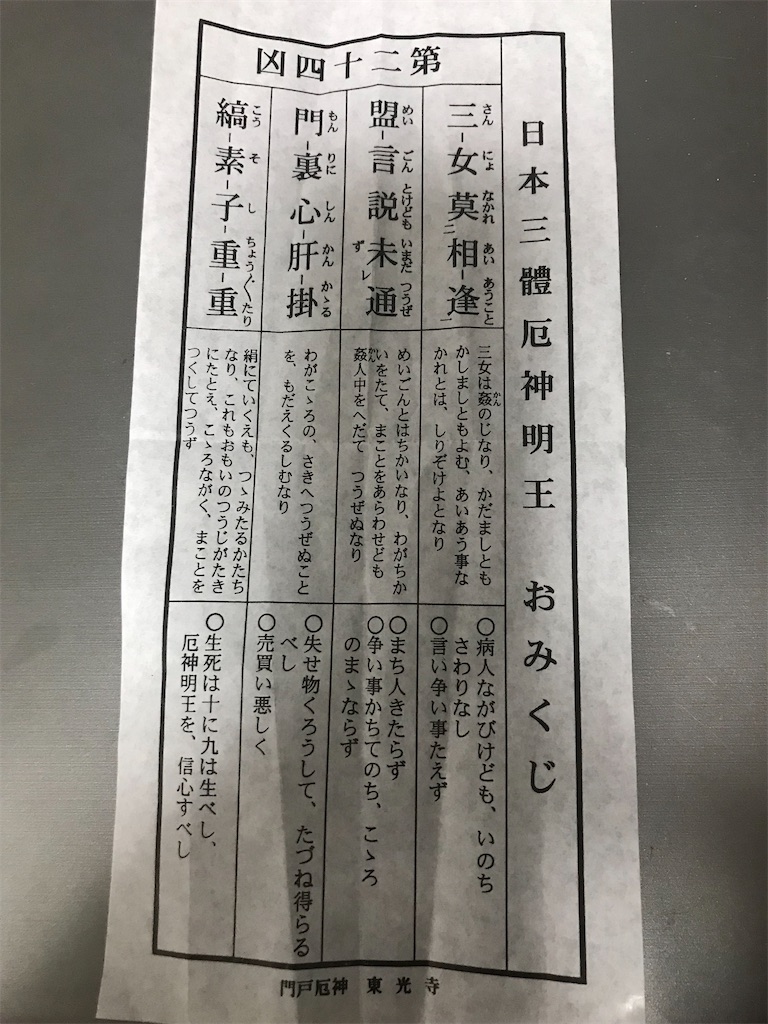 日本三體厄神明王　おみくじ
第二十四凶
三女莫相逢
さん にょ なかれ あい あうこと
二 一
三女は姦のじなり、かだましとも
かん
かしましともよむ、あいあう事な
かれとは、しりぞけよとなり
○病人ながびけども、いのち
さわりなし
○言い争い事たえず
盟言説未通
めい ごん とけども いまだ つうぜ
ず レ
めいごんとはちかいなり、わがちか
いをたて、まことをあらわせども
姦人中をへだて　つうぜぬなり
かん
○まち人きたらず
○争い事かちてのち、こゝろ
のまゝならず
門裏心肝掛
もん りに しん かん かゝる
わがこゝろの、さきへつうぜぬこと
を、もだえくるしむなり
○失せ物くろうして、たづね得らる
べし
○売買い悪しく
縞素子重重
こう そ し ちょう〱たり
絹にていくえも、つゝみたるかたち
なり、これもおもいのつうじがたき
にたとえ、こゝろながく、まことを
つくしてつうず
○生死は十に九は生べし、
厄神明王を、信心すべし
門戸厄神　東光寺